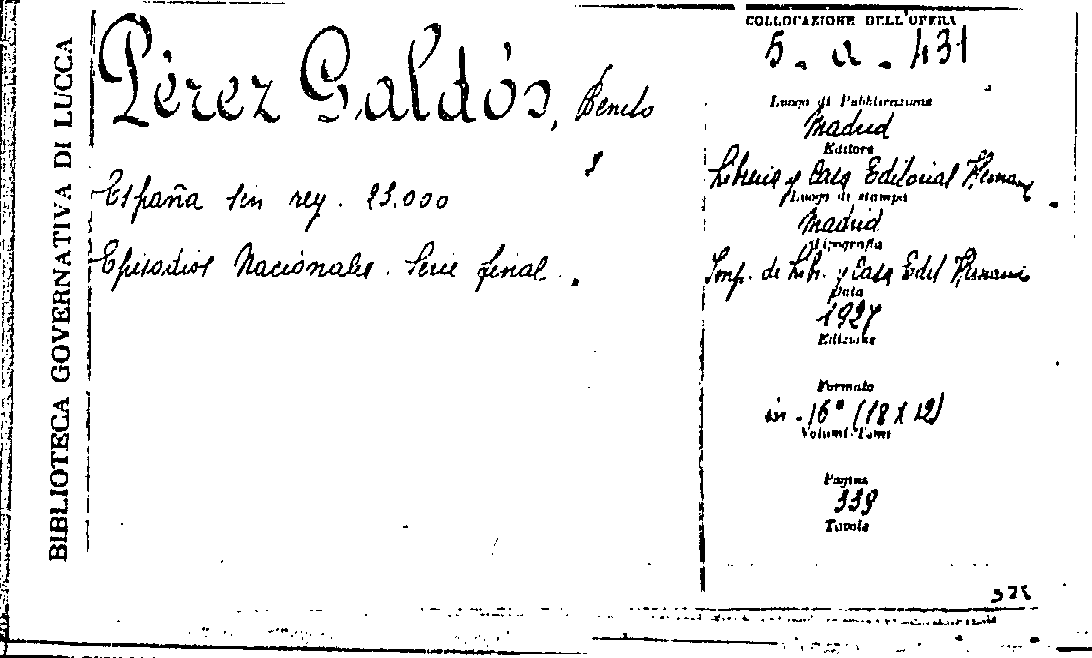 BIBLIOTECA GOVERNATIVA DI LUCCA
Pérez Galdós, Benito
España sin rey. 23.000
Episodios Nacionales. Serie final.
COLLOCAZIONE DELL'OPERA
5. a. 431
Luogo di Pubblicazione
Madrid
Editore
Librería y Casa Editorial Hernan
Luogo di stampa
Madrid
Tipografia
Imp. de Lib. y Casa Edit Hernan
Data
1927
Edizione
Formato
in - 16° (18 X 12)
Volumi-Tomi
Pagine
339
Tavole